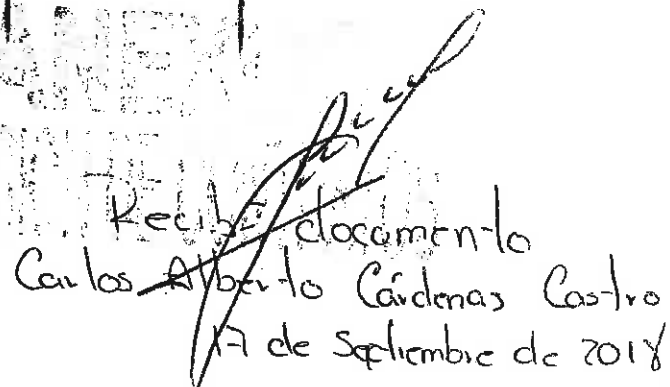 Recibí documento
Carlos Alberto Cárdenas Castro
17 de Septiembre de 2018